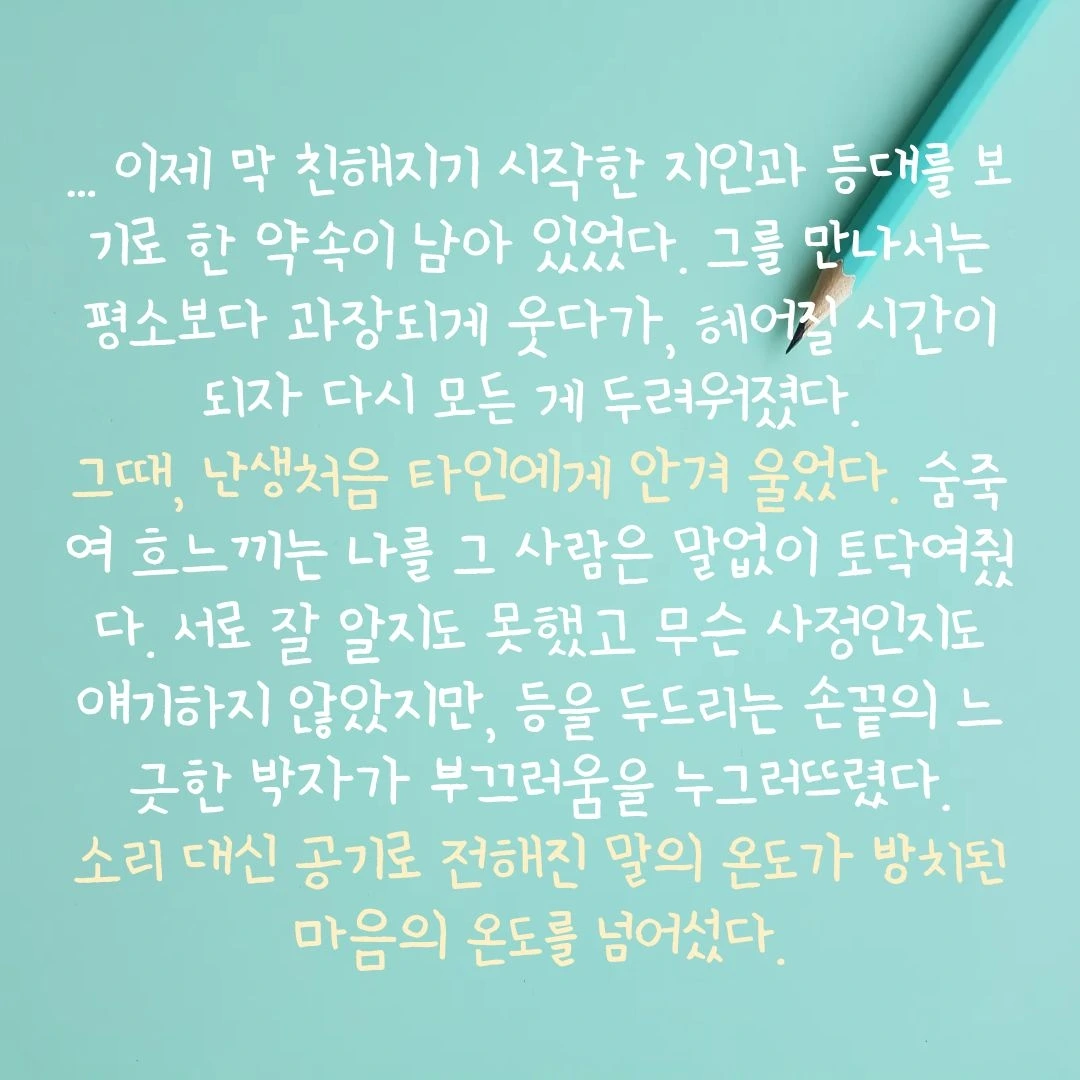 ... 이제 막 친해지기 시작한 지인과 등대를 보
기로 한 약속이 남아 있었다. 그를 만나서는
평소보다 과장되게 웃다가, 헤어질 시간이
되자 다시 모든 게 두려워졌다.
그때, 난생처음 타인에게 안겨 울었다. 숨죽
여 흐느끼는 나를 그 사람은 말없이 토닥여줬
다. 서로 잘 알지도 못했고 무슨 사정인지도
얘기하지 않았지만, 등을 두드리는 손끝의 느
긋한 박자가 부끄러움을 누그러뜨렸다.
소리 대신 공기로 전해진 말의 온도가 방치된
마음의 온도를 넘어섰다.